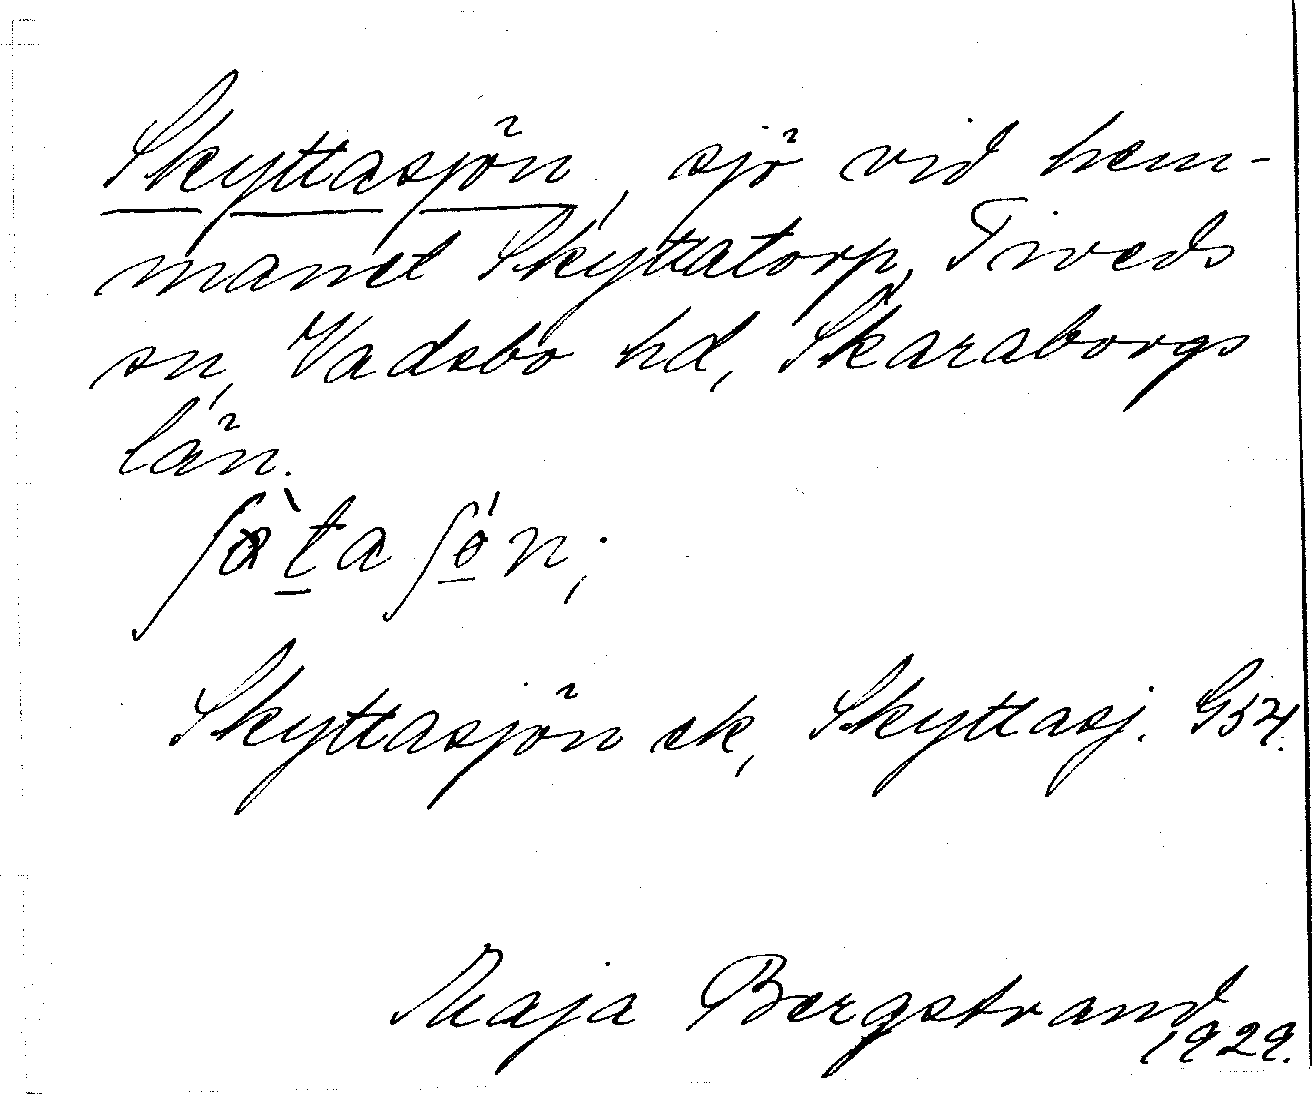 Skyttasjön, sjö vid hem-
manet Skyttatorp, Tiveds
sn, Vadsbo hd, Skaraborgs
län.
Skyttasjön ek, Skyttasj. G54.
Maja Bergstrand
1929.